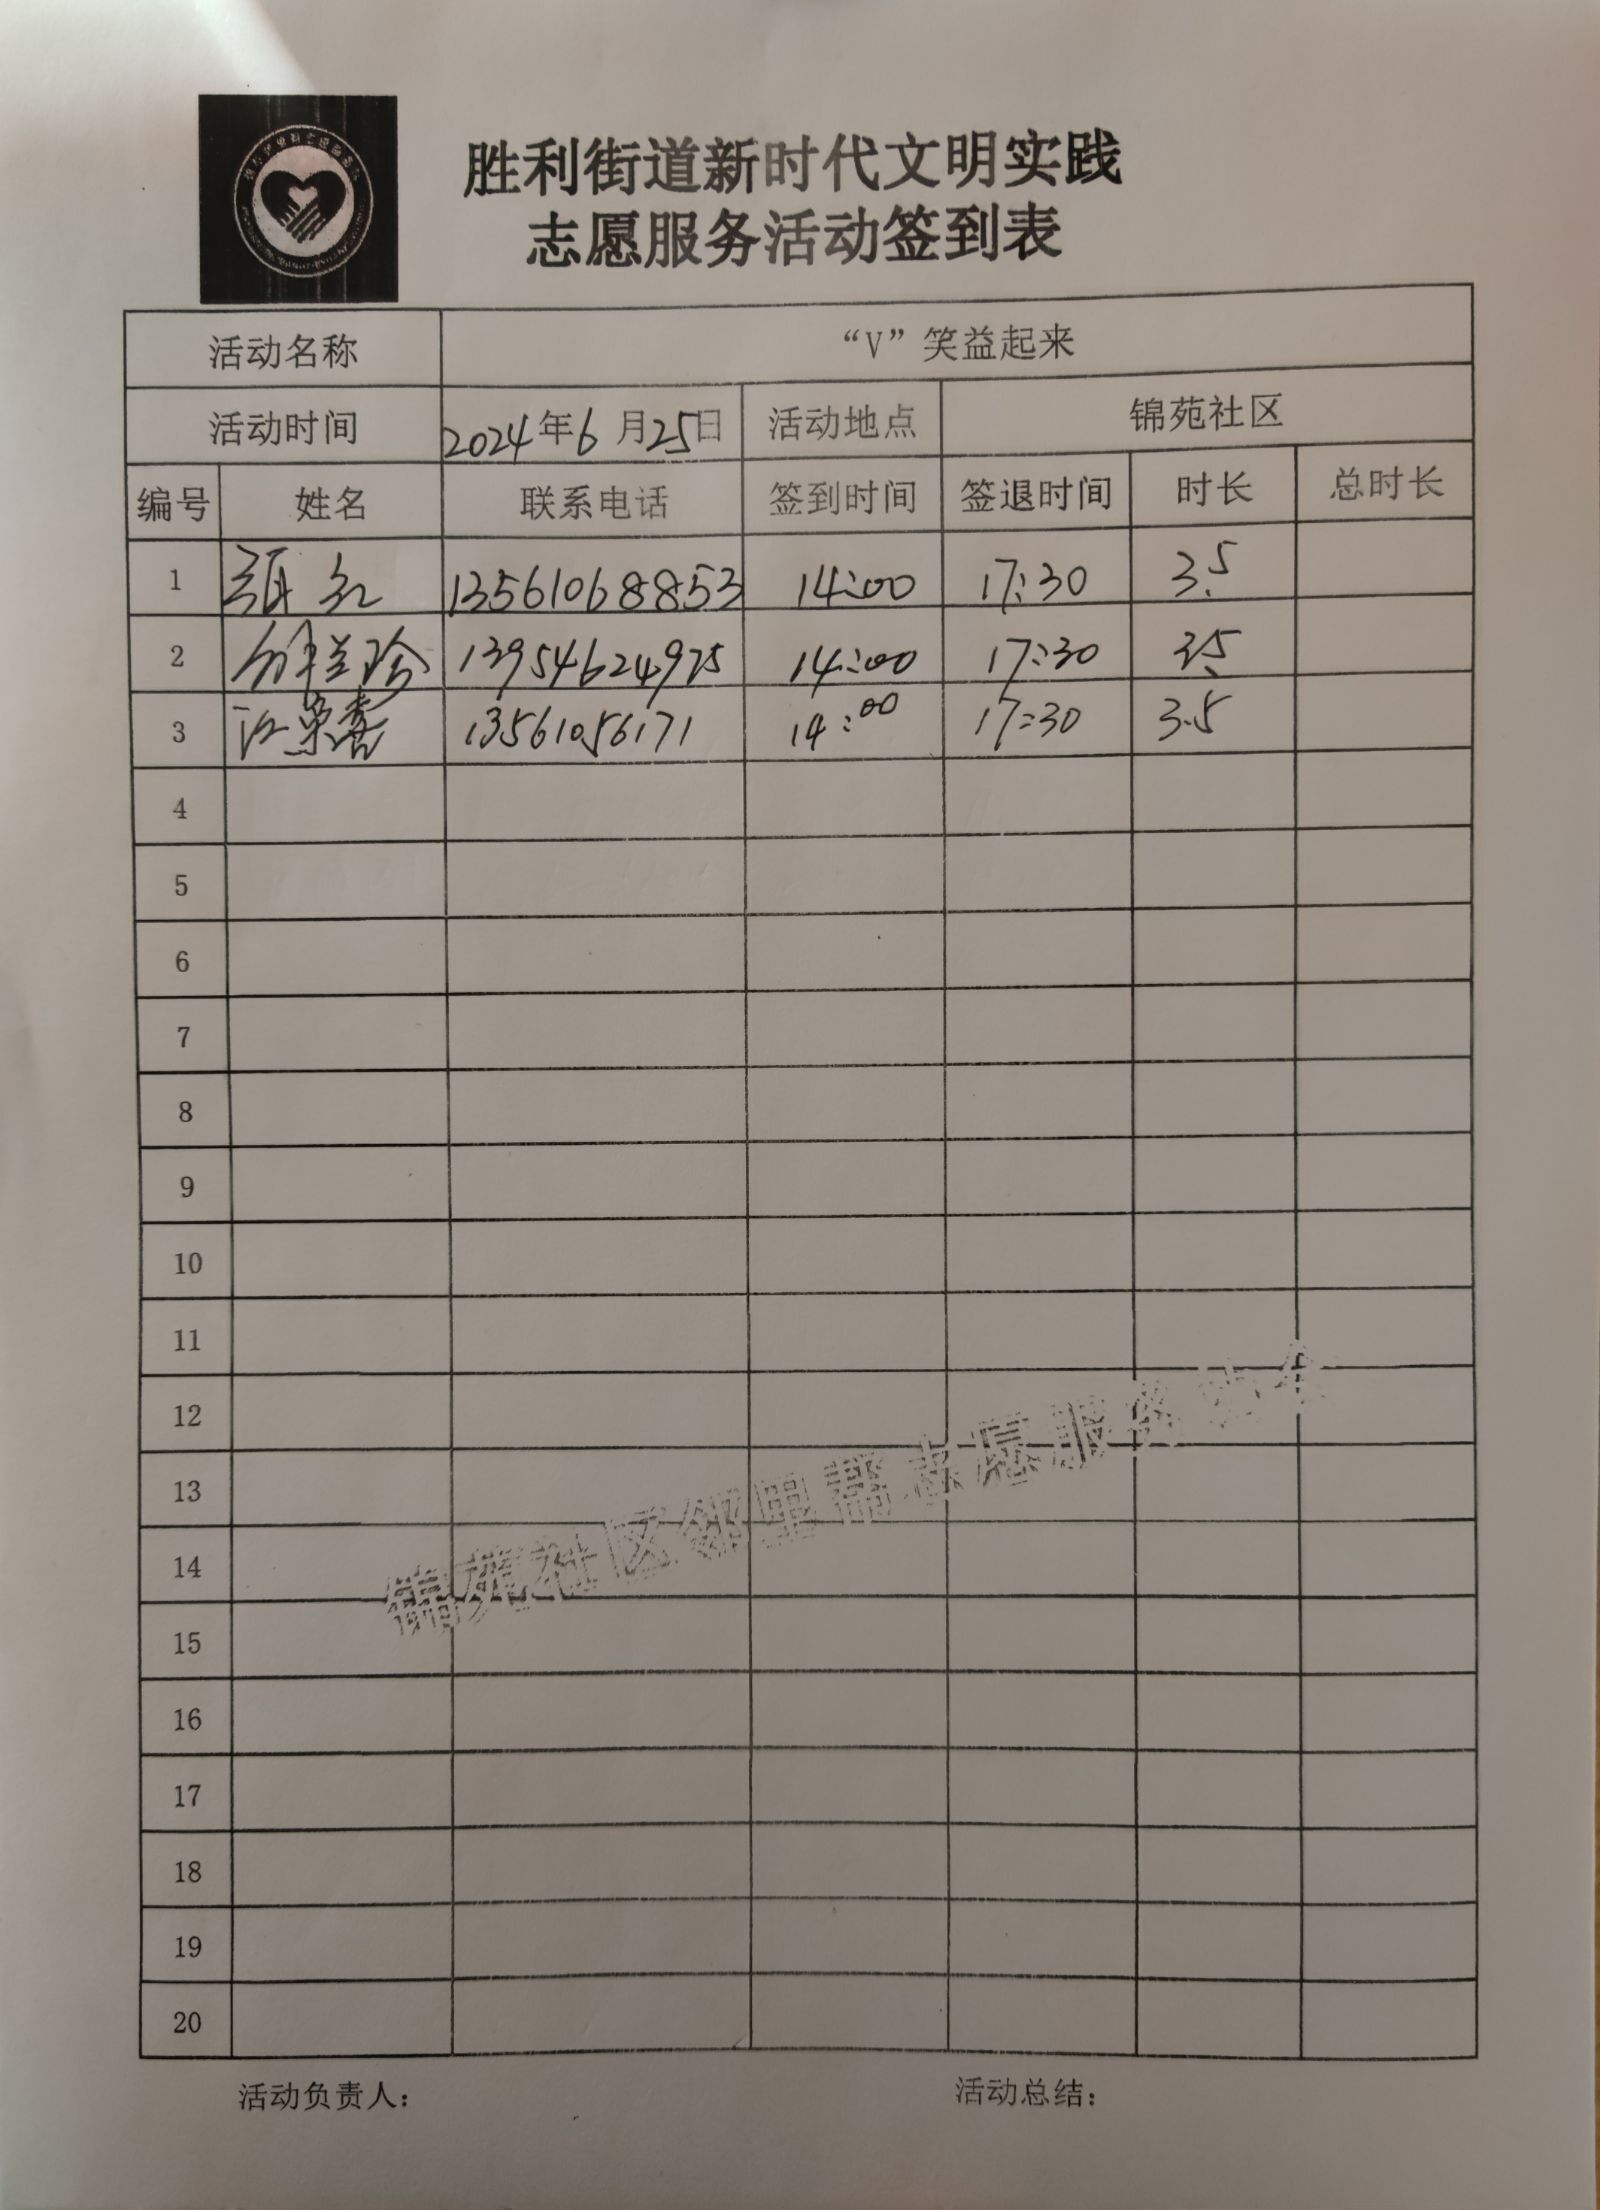 胜利街道新时代文明实践
志愿服务活动签到表
活动名称 “V”笑益起来
活动时间 2024年6月25日 活动地点 锦苑社区
编号 姓名 联系电话 签到时间 签退时间 时长 总时长
1 张红 13561068853 14:00 17:30 3.5
2 解兰珍 13954624975 14:00 17:30 3.5
3 江荣喜 13561056171 14:00 17:30 3.5
4
5
6
7
8
9
10
11
12
13
14
15
16
17
18
19
20
锦苑社区邻里帮志愿服务协会
活动负责人： 活动总结：